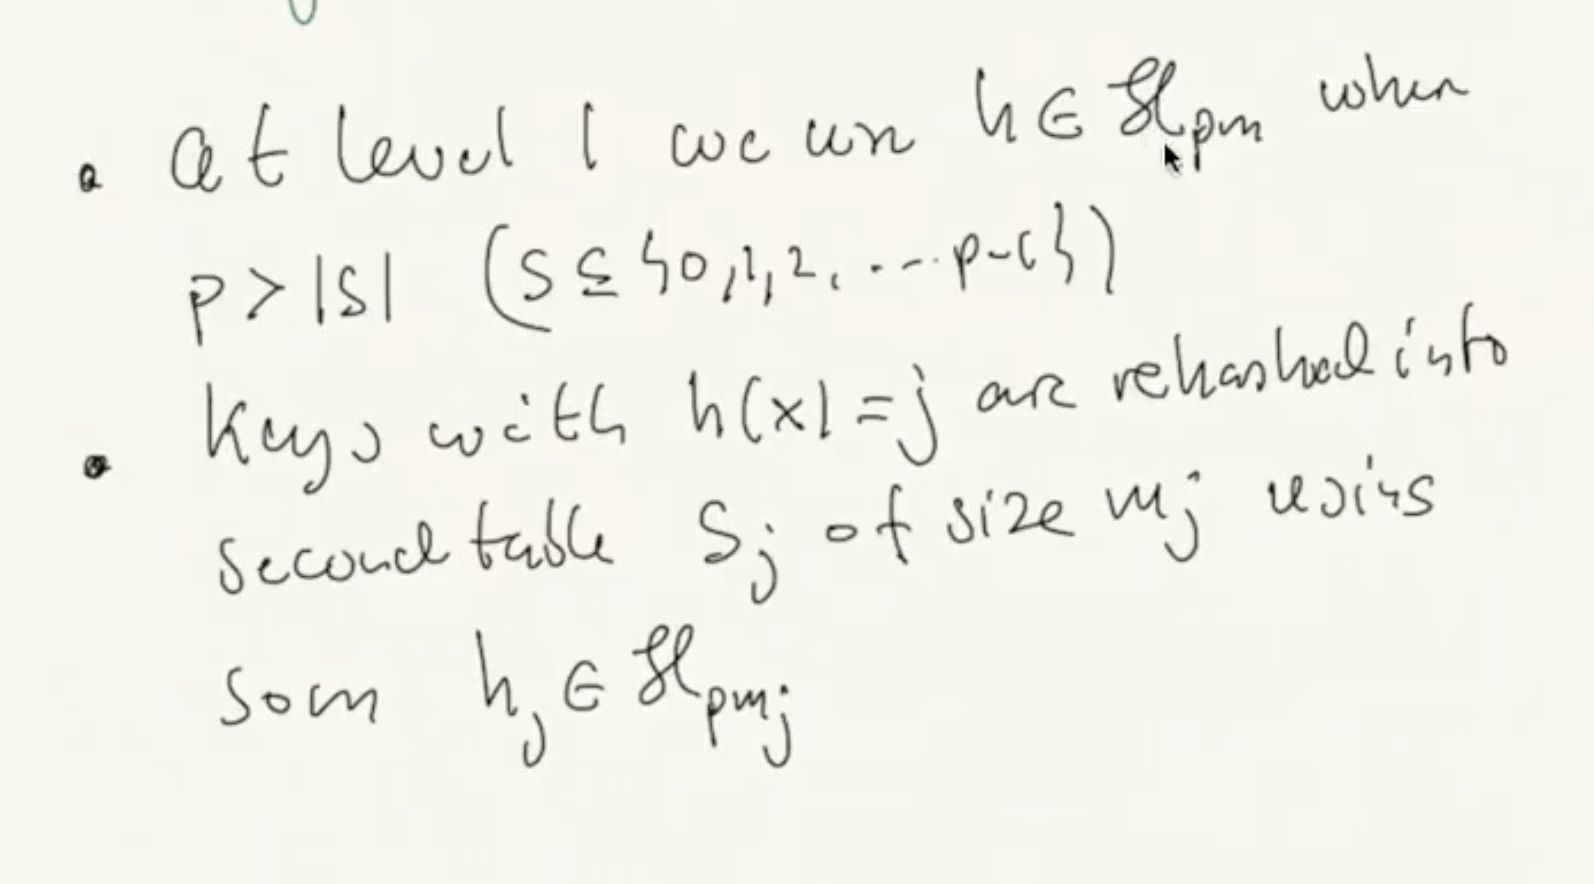 • at level 1 we use h ∈ ℋpm where
p > |S| (S ⊆ {0,1,2,...p-1})
• Keys with h(x) = j are rehashed into
second table Sj of size mj using
some hj ∈ ℋpmj